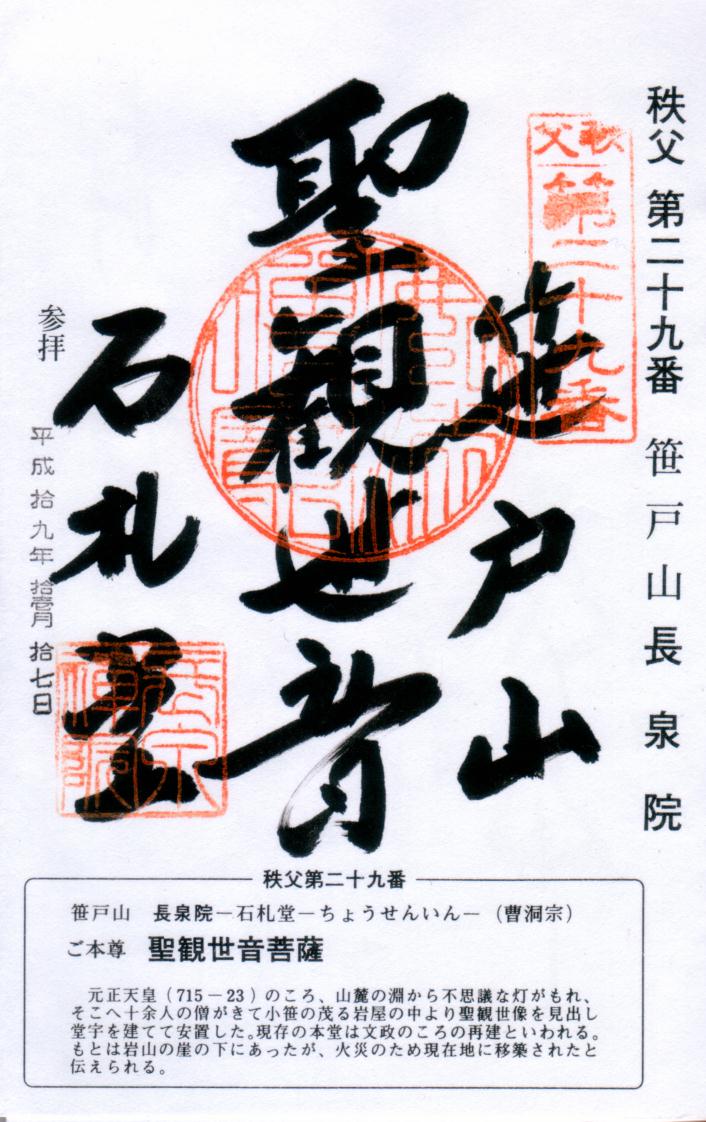 秩父 第二十九番 笹戸山 長泉院
秩父
第二十九番
笹戸山
聖観世音
石札堂
参拝
平成拾九年拾壱月拾七日
秩父第二十九番
笹戸山 長泉院－石札堂－ちょうせんいん－（曹洞宗）
ご本尊 聖観世音菩薩
元正天皇（715－23）のころ、山麓の淵から不思議な灯がもれ、
そこへ十余人の僧がきて小笹の茂る岩屋の中より聖観世像を見出し
堂宇を建てて安置した。現存の本堂は文政のころの再建といわれる。
もとは岩山の崖の下にあったが、火災のため現在地に移築されたと
伝えられる。